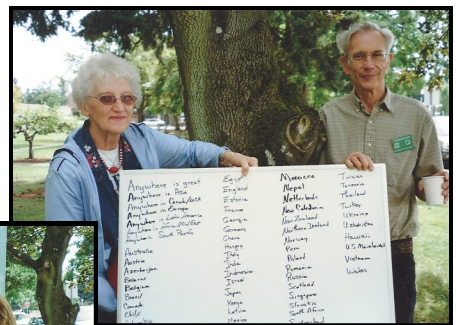 Anywhere is great
Anywhere in Asia
Anywhere in Canada/USA
Anywhere in Europe
Anywhere in Latin America
Anywhere in Africa/Mid East
Anywhere South Pacific
Australia
Austria
Azerbaijan
Belarus
Belgium
Brazil
Canada
Chile
Egypt
England
Estonia
France
Georgia
Germany
Ghana
Hungry
Italy
India
Indonesia
Israel
Japan
Kenya
Latvia
Mexico
Morocco
Nepal
Netherlands
New Caledonia
New Zealand
Northern Ireland
Norway
Peru
Poland
Romania
Russia
Scotland
Singapore
Slovakia
South Africa
Taiwan
Tanzania
Thailand
Turkey
Ukraine
Uzbekistan
Hawaii
U.S. Mainland
Vietnam
Wales